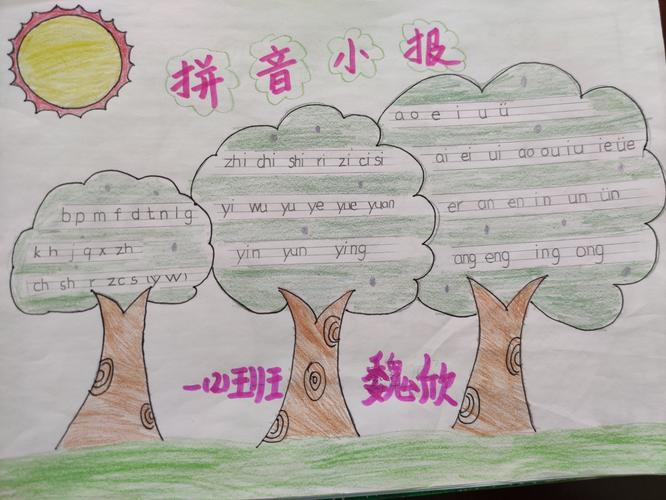 拼音小报
b p m f d t n l g
k h j q x zh
ch sh r z c s (y w)
zhi chi shi ri zi ci si
yi wu yu ye yue yuan
yin yun ying
a o e i u ü
ai ei ui ao ou iu ie üe
er an en in un ün
ang eng ing ong
一(2)班 魏欣